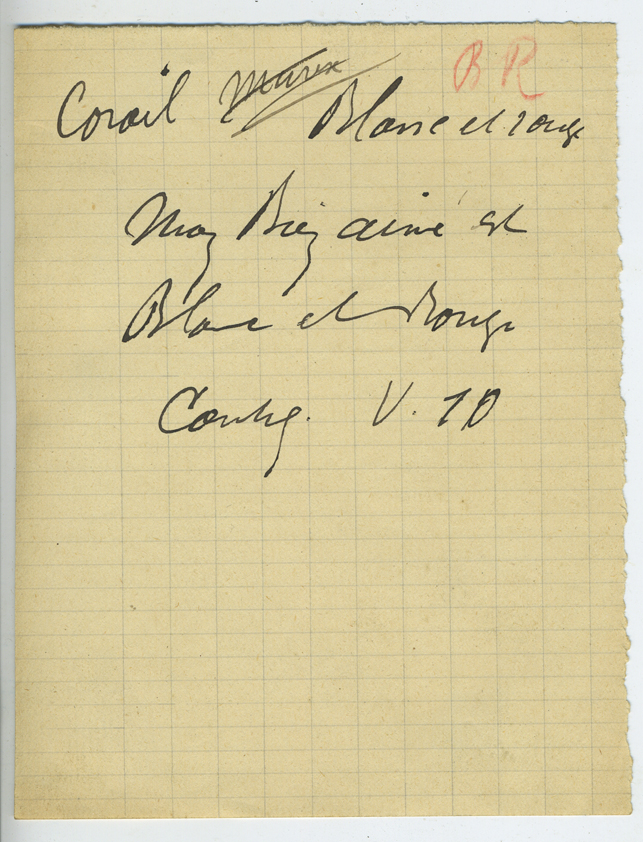 B R
Corail Murex Blanc et rouge
Moy Bien aimé est
Blanc et Rouge
Cantiq. V. 10